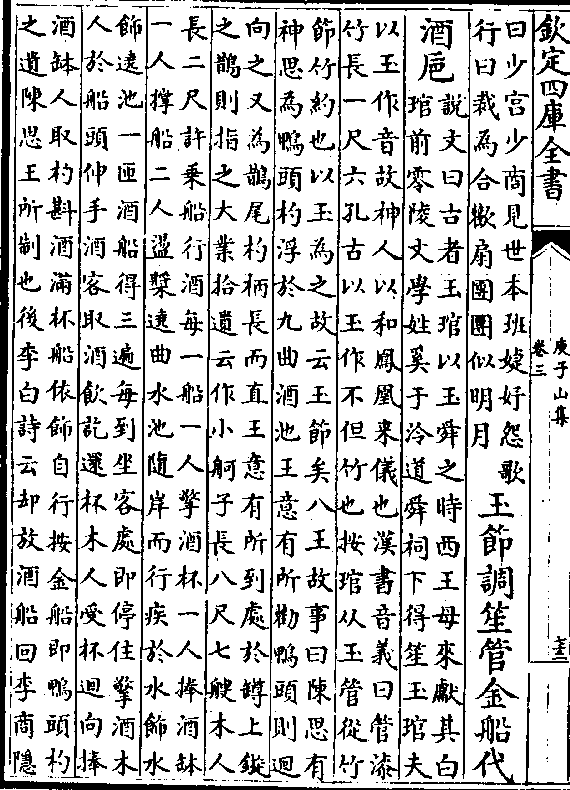 欽定四庫全書
庚子山集
卷三
曰少宫少商見世本班婕妤怨歌
行曰裁為合歡扇團團似明月
玉節調笙管金船代
酒巵
說文曰古者玉琯以玉舜之時西王母來獻其白
琯前零陵文學姓奚于泠道舜祠下得笙玉琯夫
以玉作音故神人以和鳳凰来儀也漢書音義曰管漆
竹長一尺六孔古以玉作不但竹也按琯从玉管從竹
節竹約也以玉為之故云玉節矣八王故事曰陳思有
神思為鴨頭杓浮於九曲酒池王意有所勸鴨頭則迴
向之又為鵲尾杓柄長而直王意有所到處於罇上鏇
之鵲則指之大業拾遺云作小舸子長八尺七艘木人
長二尺許乗船行酒每一船一人擎酒杯一人捧酒缽
一人撑船二人盪槳遶曲水池隨岸而行疾於水飾水
飾遶池一匝酒船得三遍每到坐客處即停住擎酒木
人於船頭伸手酒客取酒飲訖還杯木人受杯迴向捧
酒缽人取杓斟酒滿杯船依飾自行按金船即鴨頭杓
之遺陳思王所制也後李白詩云却放酒船回李商隱